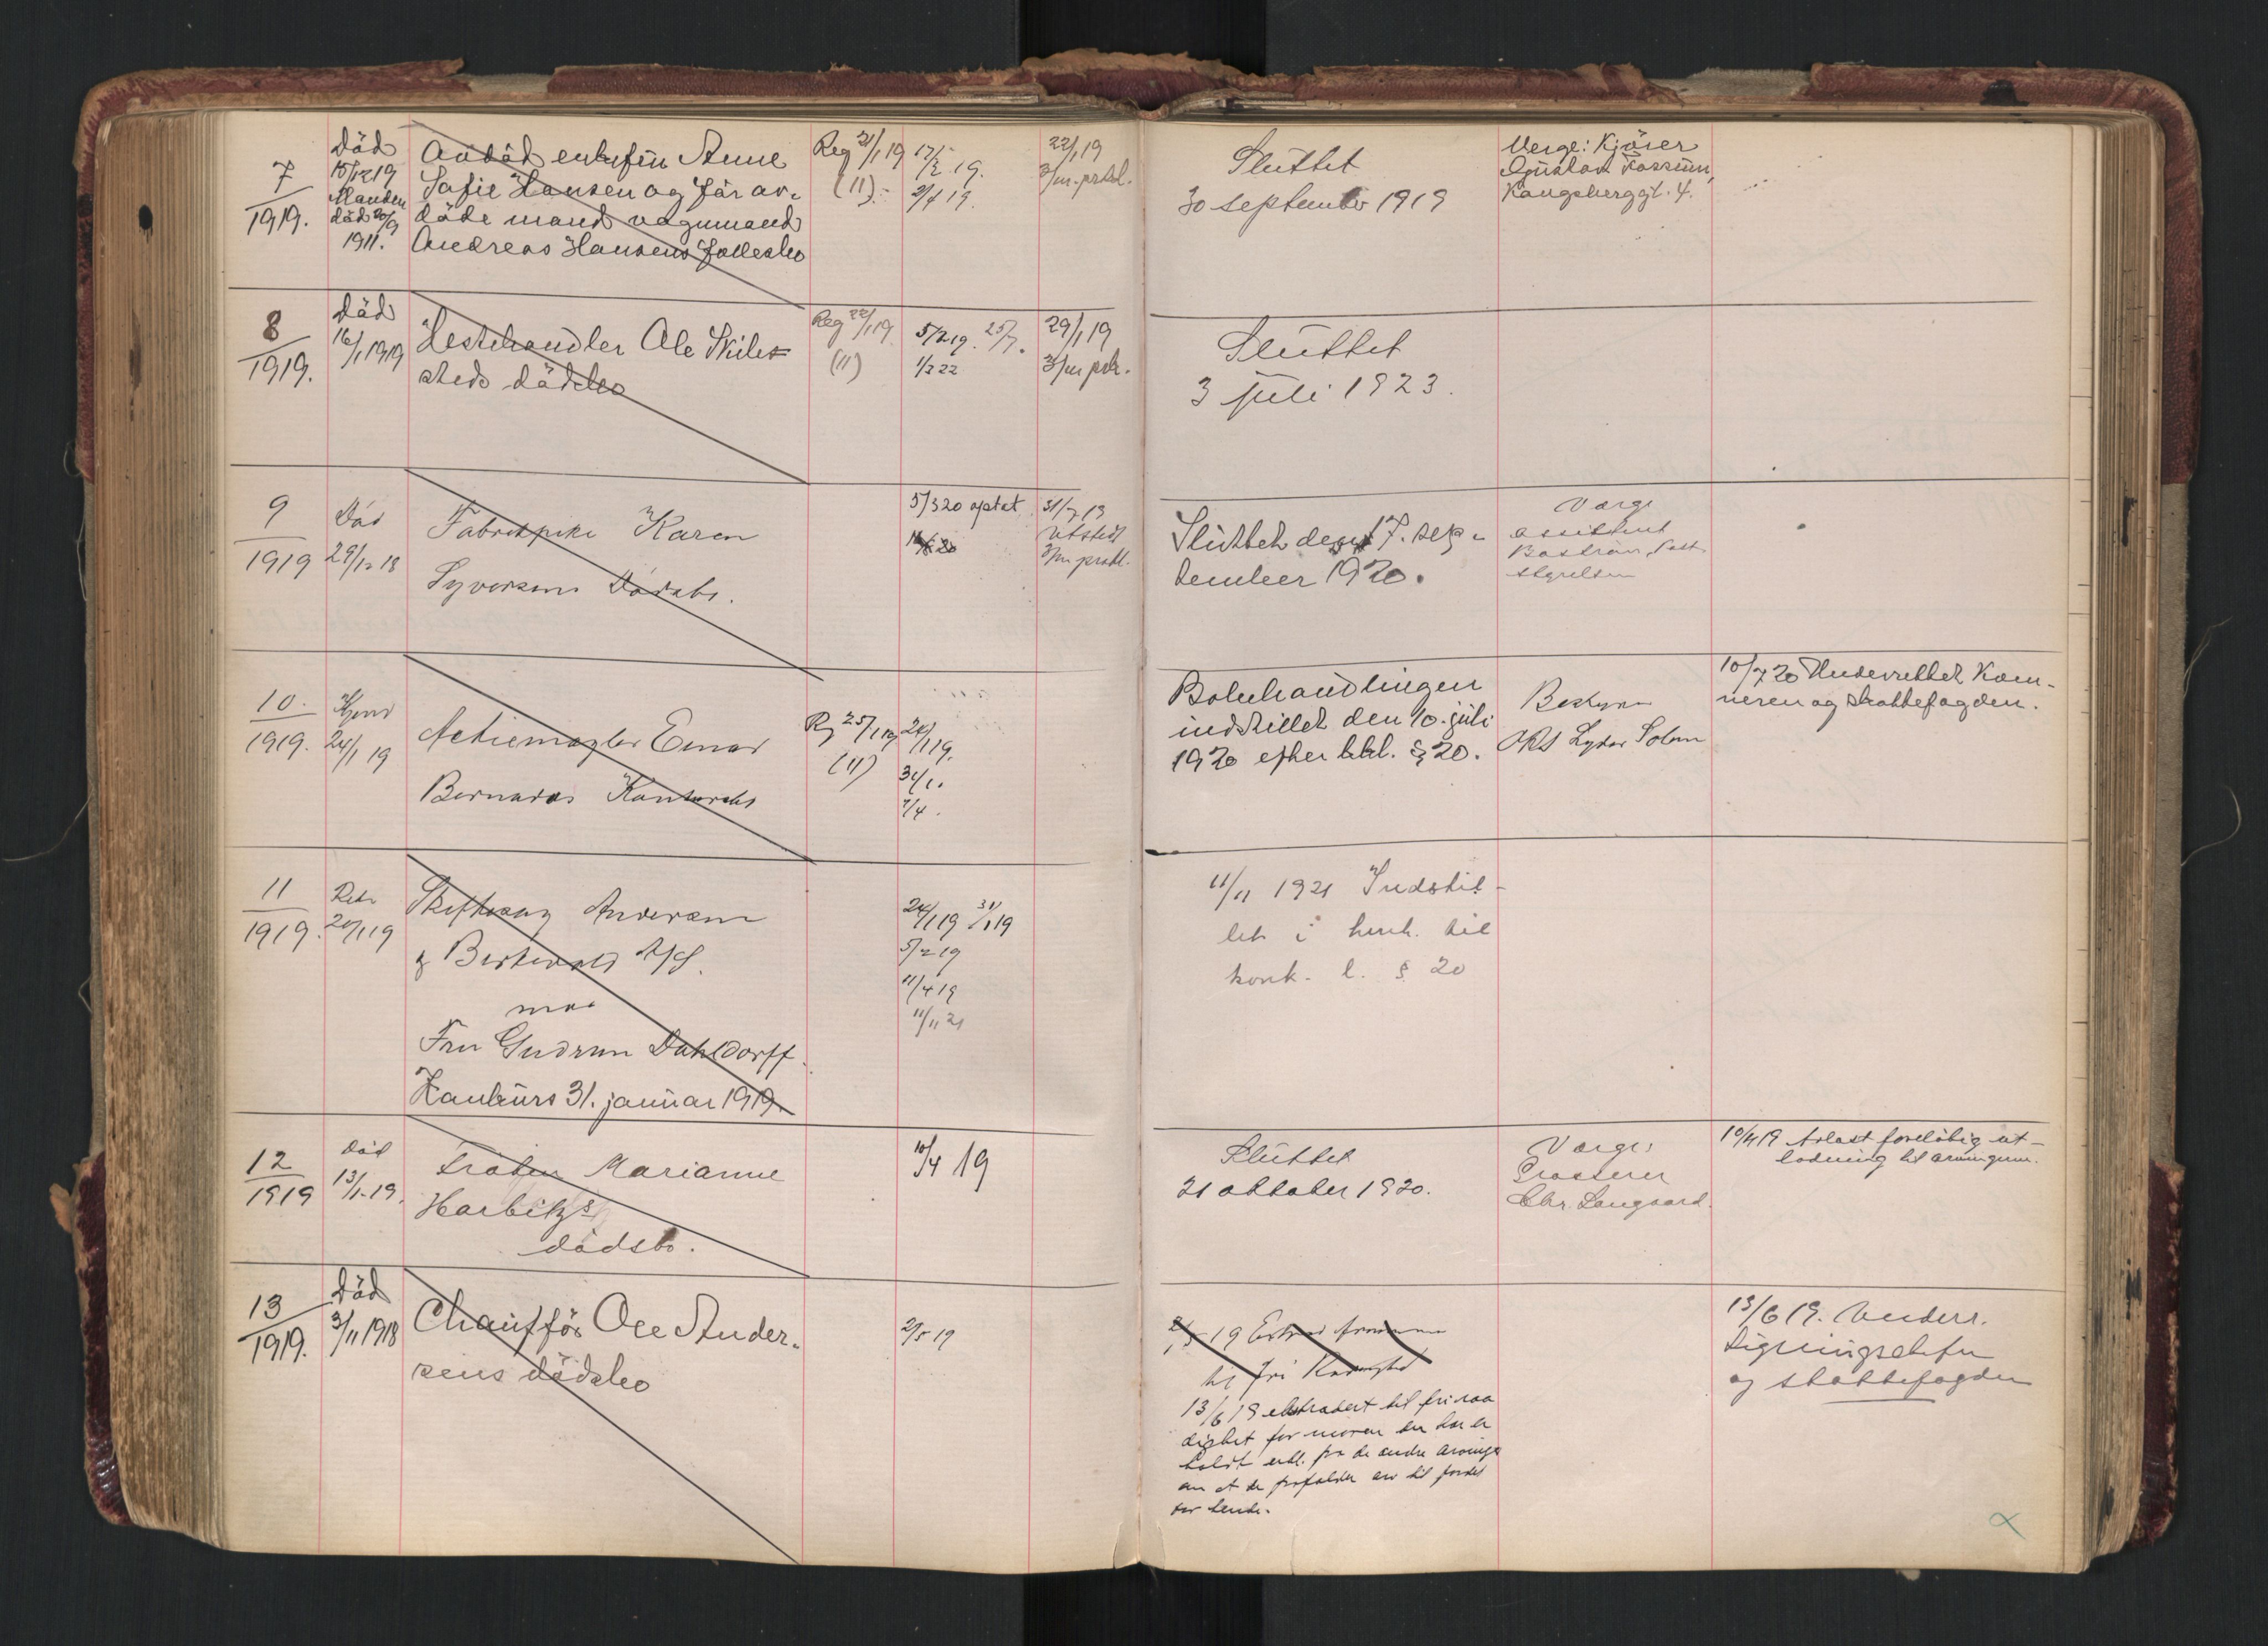 7
1919.
Död
15/12 19
Manden
död 20/9
1911.
Avdöd enkefru Anne
Sofie Hansen og för av-
döde mand vognmand
Andreas Hansens fællesbo
Reg 21/1 19
(11).
17/2 19.
2/4 19.
22/1 19
3/m. prkl.
Sluttet
30 september 1919
Verge: Kjörer
Gustav Fossum,
Kongsberggt. 4.
8
1919.
Död
16/1 1919
Hestehandler Ole Skiles-
steds dödsbo
Reg 22/1 19
(11)
5/2 19. 25/7.
1/2 22
29/1 19
3/m prk.
Sluttet
3 juli 1923.
9
1919
Död
29/12 18
Fabrikpike Karen
Syversens Dödsbo.
5/3 20 optat
31/7 19
Utstedt
3/m prokl.
Sluttet den 17. sep-
tember 1920.
Værge
assistent
Boström, Post-
styrelsen
10.
1919.
24/1 19
Actiemægler Einar
Bernards Konkursbo
Reg 25/1 19
(11)
24/1 19.
31/1.
7/4.
Bobehandlingen
indstillet den 10. juli
1920 efter kkl. § 20.
Bestyrer
ORS Lyder Solem
10/7 20 Underrettet Kæm-
neren og skattefogden.
11
1919.
20/1 19
Skiftesag Andersen
& Berkwald A/S.
mod
Fru Gudrun Dahldorff.
Konkurs 31. januar 1919.
24/1 19 31/1 19
5/2 19
11/4 19
11/11 21
11/11 1921 Indstil-
let i henh. til
konk. l. § 20
12
1919
Död
13/1-19.
Fröken Marianne
Harbitz's
dödsbo.
10/4 19
Sluttet
21 oktober 1920.
Værge:
Grosserer
Chr. Langaard.
10/4 19 Avlast foreløbig ut-
lodning til arvingerne.
13
1919.
Död
3/11 1918
Chaufför Ole Ander-
sens dödsbo
2/5 19
2/5 19
til fri Raadighed
13/6 19 ekstradert til fri raa
dighet for moren der har er
holdt erkl. fra de andre arvinger
om at de frafalder arv til fordel
for hende.
13/6 19. Underr.
Ligningschefen
og skattefogden